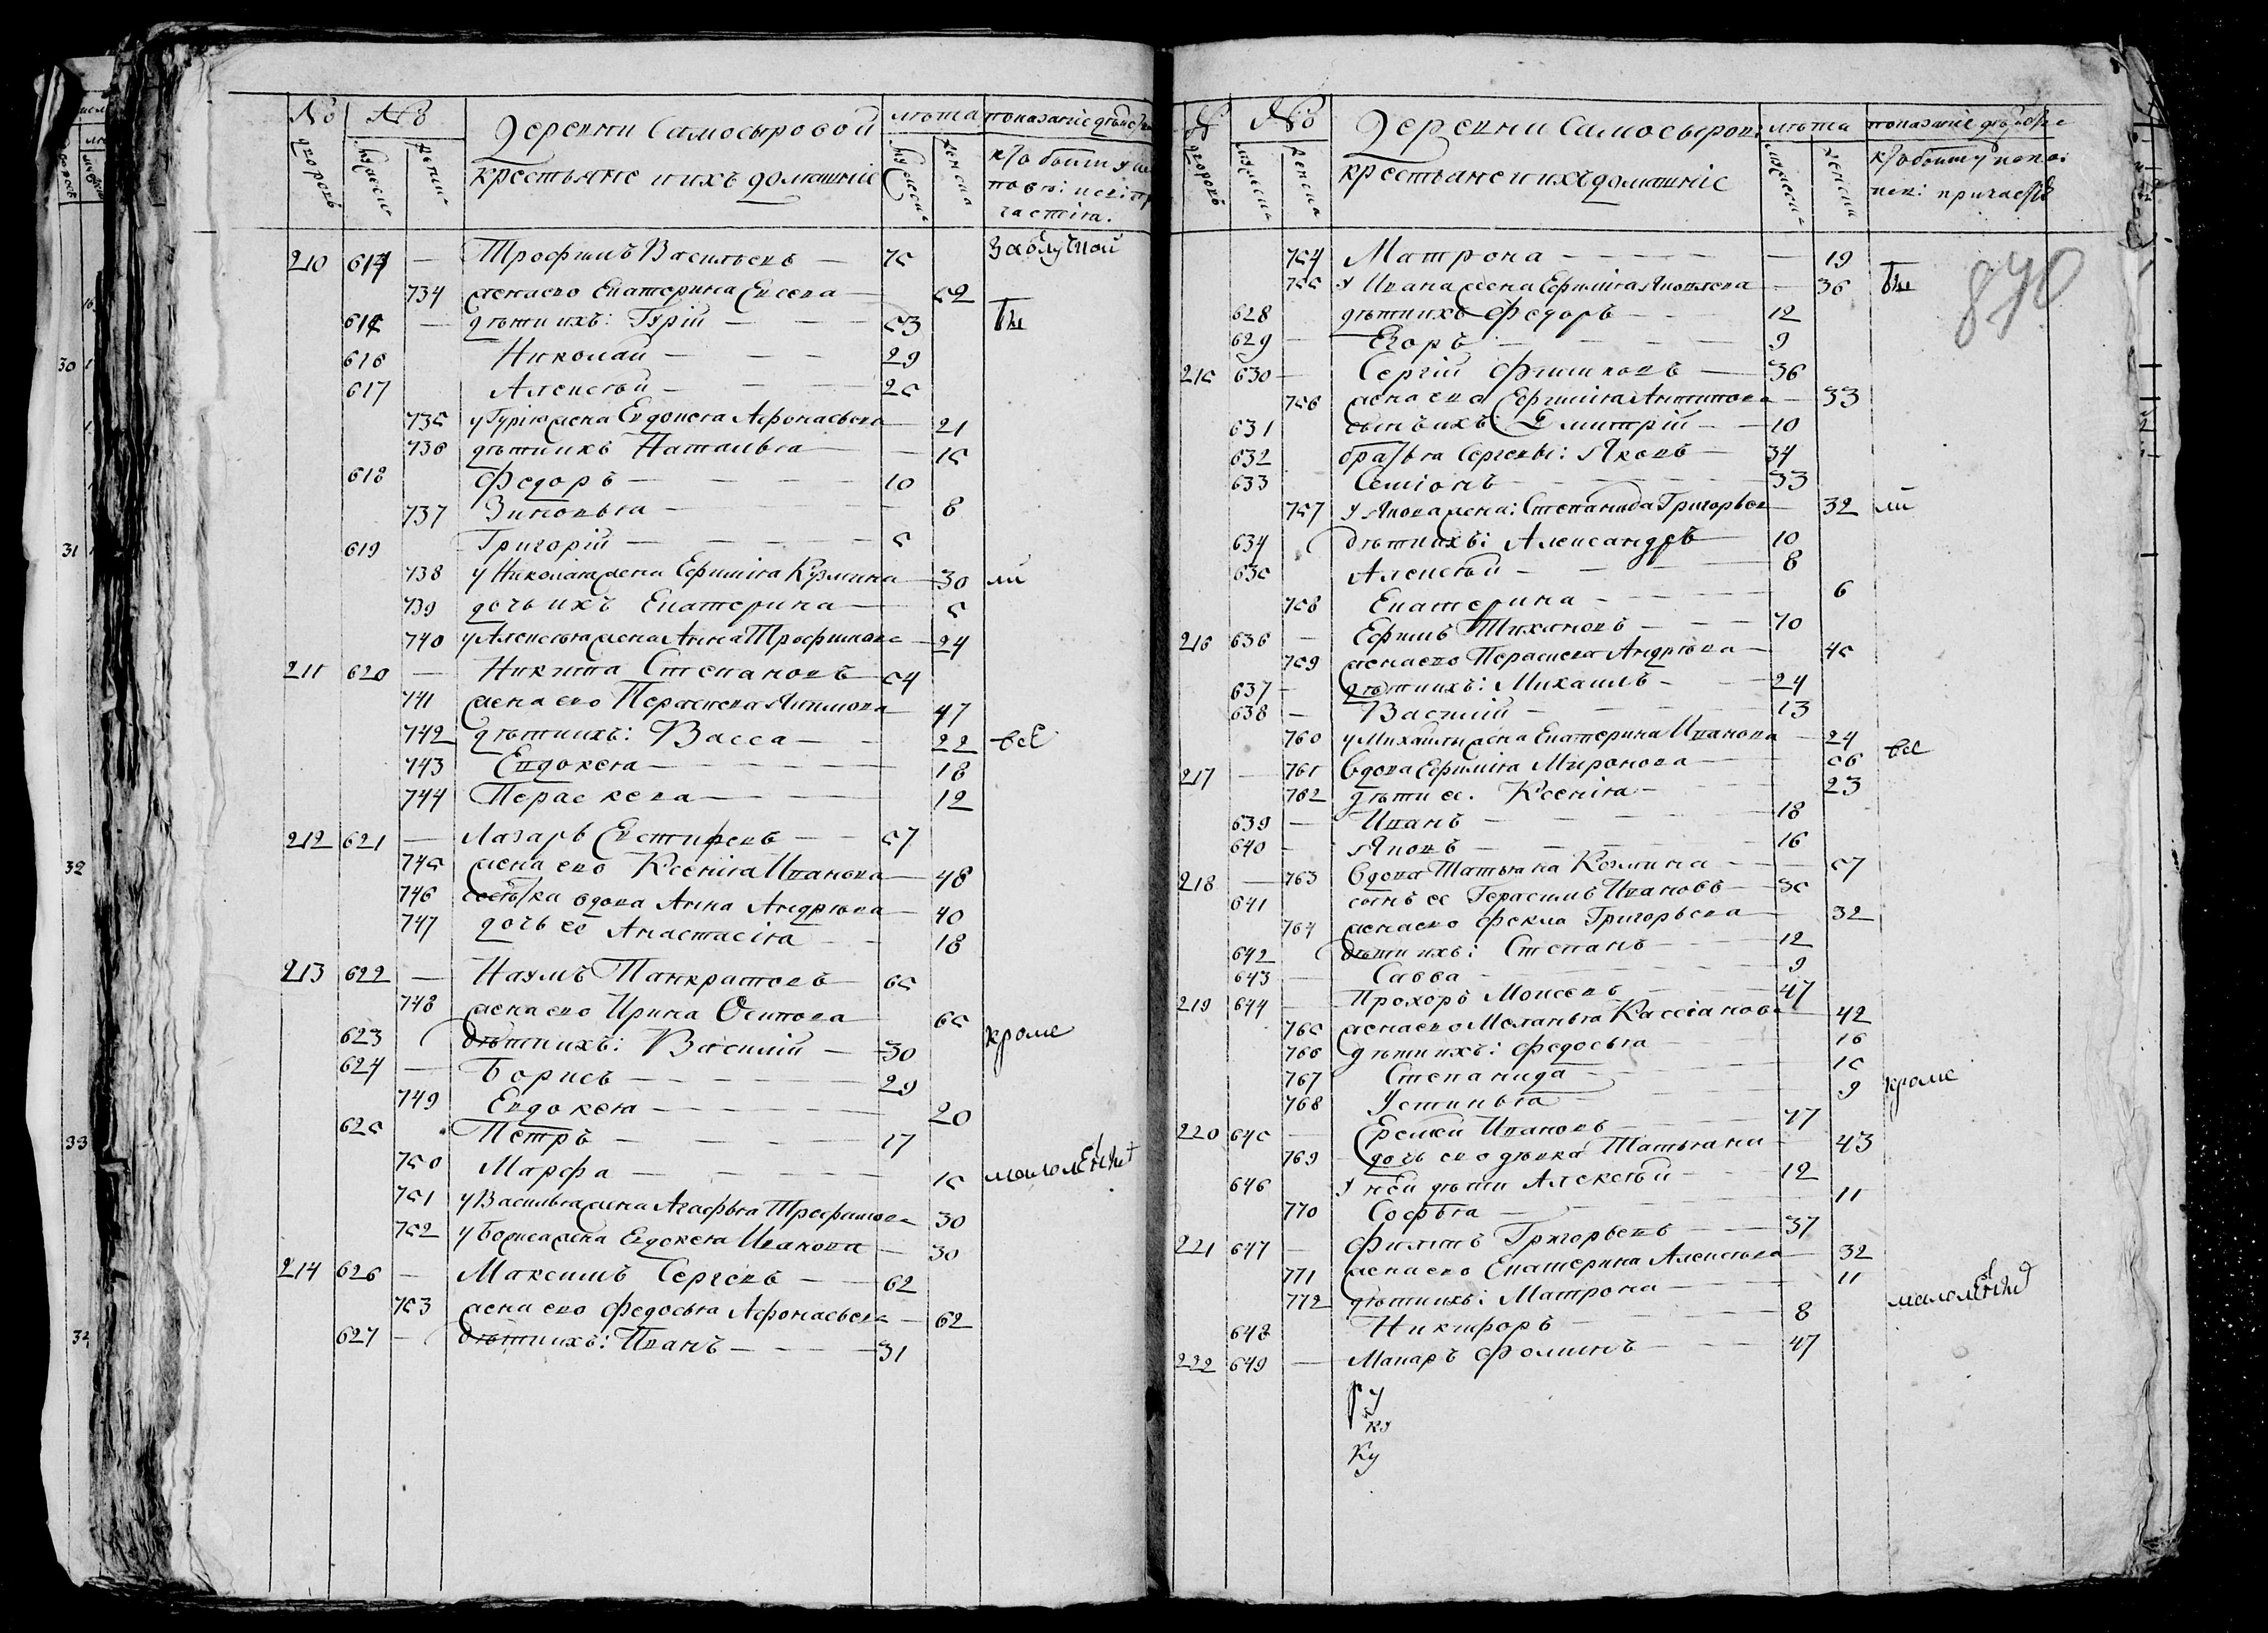 No No Деревни Самосыровой лѣта показаніе дѣйств
дворовъ мужеска женска крестьяне и ихъ домашніе мужеска женска кто бытъ у
210 614 — Трофимъ Васильевъ — 75 За болѣзной
734 жена ево Екатерина Евсева — 52
615 — дѣти ихъ: Гурій — 53 бы
616 Николай — 29
617 Алексѣй — 25
735 у Гурія жена Евдокея Афонасьева — 21
736 дѣти ихъ Наталья — 15
618 Федоръ — 10
737 Зиновья — 8
619 Григорій — 5
738 у Николая жена Ефимія Кузмина — 30 ли
739 дочь ихъ Екатерина — 5
740 у Алексѣя жена Анна Трофимова — 24
211 620 — Никита Степановъ — 54
741 жена ево Пераскева Якимова 47
742 дѣти ихъ: Васса — 22 всѣ
743 Евдокея — 18
744 Пераскева — 12
212 621 — Лазарь Евстифеевъ — 57
745 жена ево Ксенія Иванова — 48
746 вдова Анна Андрѣева — 40
747 дочь её Анастасія — 18
213 622 — Наумъ Панкратовъ — 65
748 жена ево Ирина Осипова 65
623 дѣти ихъ: Василій — 30 кроме
624 — Борисъ — 29
749 Евдокея — 20
625 Петръ — 17
750 Марфа — 15 малолѣтнихъ
751 у Василья жена Агафья Трофимова 30
752 у Бориса жена Евдокея Иванова — 30
214 626 — Максимъ Сергеевъ — 62
753 жена ево Федосья Афонасьева — 62
627 — дѣти ихъ: Иванъ — 31
No No Деревни Самосыровой лѣта показаніе дѣйств
дворовъ мужеска женска крестьяне и ихъ домашніе мужеска женска кто бытъ у испо:
вед: причастія
870
754 Матрона — 19
755 у Ивана жена Ефимія Яковлева — 36 бы
628 дѣти ихъ Федоръ — 12
629 — Егоръ — 9
215 630 — Сергій Филиповъ — 36
756 жена ево Ефимія Антипова — 33
631 сынъ ихъ: Димитрій — 10
632 братья Сергеевы: Яковъ — 34
633 Семіонъ — 33
757 у Якова жена: Степанида Григорьев — 32 ли
634 дѣти ихъ: Александръ 10
635 Алексѣй — 8
758 Екатерина — 6
216 636 — Ефимъ Тихановъ — 70
759 жена ево Пераскева Андрѣева — 45
637 — дѣти ихъ: Михаилъ — 24
638 — Василій — 13
760 у Михаилы жена Екатерина Иванова — 24
217 — 761 вдова Ефимія Миронова — 56 всѣ
762 дѣти ее: Ксенія — 23
639 — Иванъ — 18
640 — Яковъ — 16
218 — 763 вдова Татьяна Козмина — 57
641 сынъ ее Герасимъ Ивановъ — 35
764 жена ево Фекла Григорьева — 32
642 дѣти ихъ: Степанъ — 12
643 — Савва — 9
219 644 — Прохоръ Моисеевъ — 47
765 жена ево Меланья Кассіанова 42
766 дѣти ихъ: Федосья — 16
767 Степанида — 15
768 Устинья — 9 кроме
220 645 — Еремей Ивановъ — 77
769 дочь ево дѣвка Татьяна — 43
646 у ней дѣти Алексѣй — 12
770 Софья — 11
221 647 — Филипъ Григорьевъ — 37
771 жена ево Екатерина Алексѣева — 32
772 дѣти ихъ: Матрона — 11 малолѣтнихъ
648 Никифоръ — 8
222 649 — Макаръ Фоминъ — 47
ку
Ку